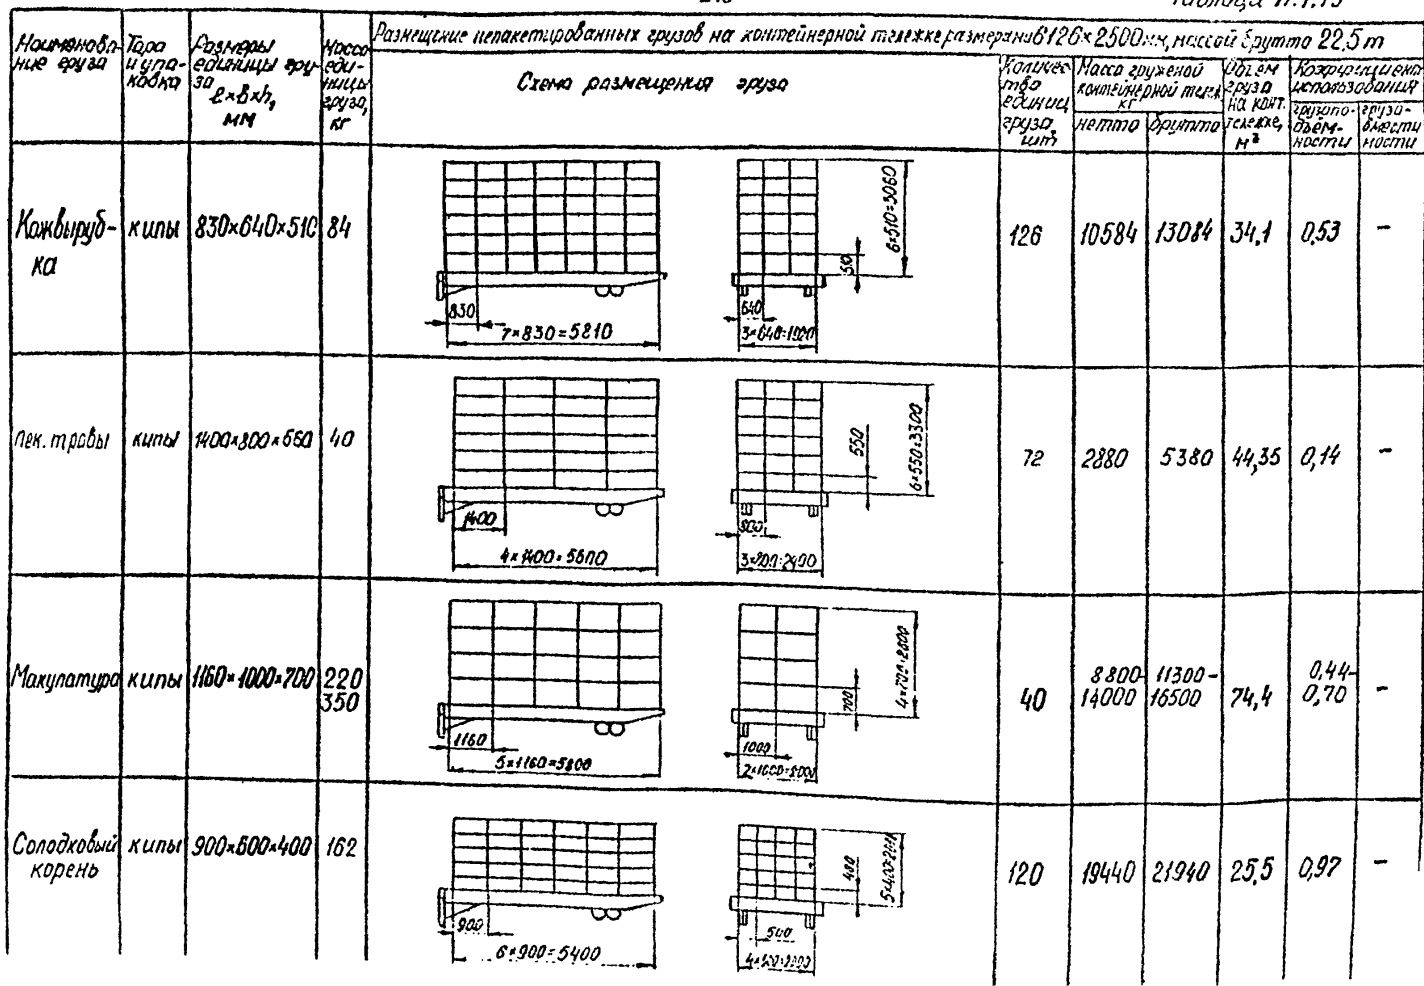 Таблица
Наименова-
ние груза
Тара
и упа-
ковка
Размеры
единицы гру-
за
ℓ×b×h,
мм
Масса
еди-
ницы
груза,
кг
Размещение непакетированных грузов на контейнерной тележке размерами 6126×2500мм, массой брутто 22,5т
Схема размещения груза
Количес-
тво
единиц
груза,
шт
Масса груженой
контейнерной тележ.
кг
нетто
брутто
Объем
груза
на конт.
тележке,
м³
Коэффициент
использования
грузопо-
дъём-
ности
грузо-
вмести
мости
Кожвыруб-
ка
кипы
830×640×510
84
830
7×830=5810
640
3×640=1920
510
6×510=3060
126
10584
13084
34,1
0,53
-
Лек. травы
кипы
1400×800×550
40
1400
4×1400=5600
800
3×800=2400
550
6×550=3300
72
2880
5380
44,35
0,14
-
Макулатура
кипы
1160×1000×700
220
350
1160
5×1160=5800
1000
2×1000=2000
700
4×700=2800
40
8800-
14000
11300-
16500
74,4
0,44-
0,70
-
Солодковый
корень
кипы
900×500×400
162
900
6×900=5400
500
4×500=2000
400
5×400=2000
120
19440
21940
25,5
0,97
-